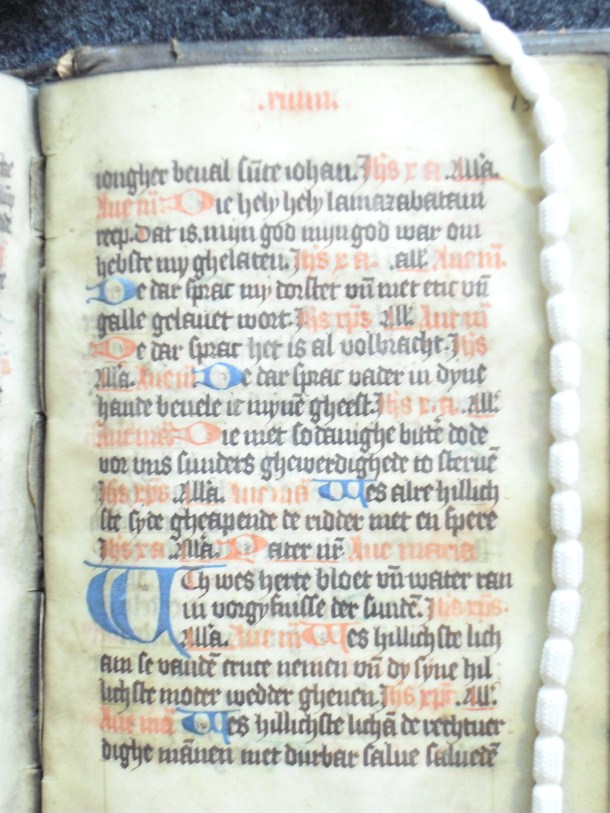 iongher beual sūte iohan. Jhs x a. Alla.
Aue m̄. Die hely hely lamazabatani
reep. dat is. mijn god myn god war om
hebste my ghelaten. Jhs x a. all. Aue m̄.
De dar sprac my dorstet vn̄ met etic vn̄
galle gelauet wort. Jhs xp̄s All. Aue m̄
De dar sprac het is al volbracht. Jhs
Alla. Aue m̄. De dar sprac vader in dyne
hande beuele ic mynē gheest. Jhs x. a. All.
Aue ma Die met sodanighe bittē dode
vor vns sunders ghewerdighede to steruē
Jhs xp̄s. Alla. Aue ma Wes alre hillich
ste syde gheapende de ridder met en spere
Jhs x a. Alla. Pater nr̄ Aue maria
Wth wes herte bloet vn̄ water ran
in vorgyfnisse der sundē. Jhs xp̄s.
Alla. Aue m̄ Wes hillichste lich
am se vandē cruce nemen vn̄ dy syne hil
lichste moder wedder gheuen. Jhs xp̄s. All.
Aue ma Wes hillichste lichā de rechtuer
dighe mānen met durbar salue saluedē